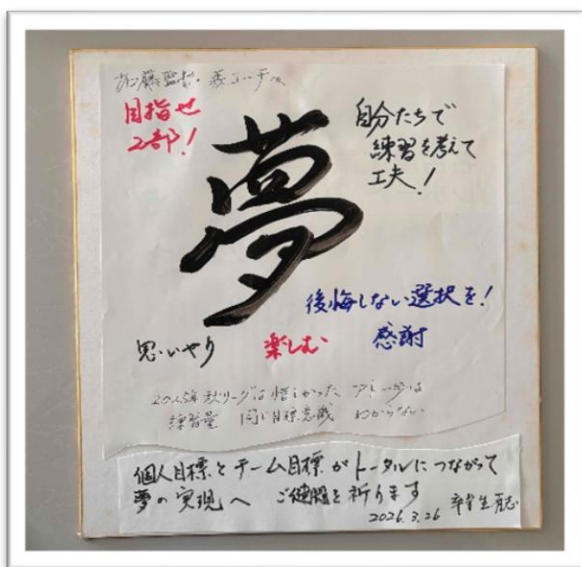 目指せ
2部!
夢
自分たちで
練習を考えて
工夫!
後悔しない選択を!
感謝
思いやり
楽しむ
2025年秋リーグは惜しかった
練習量 同じ目標意識 わからない
個人目標とチーム目標がトータルにつながって
夢の実現へ ご健闘を祈ります
2026.3.26 卒業生有志